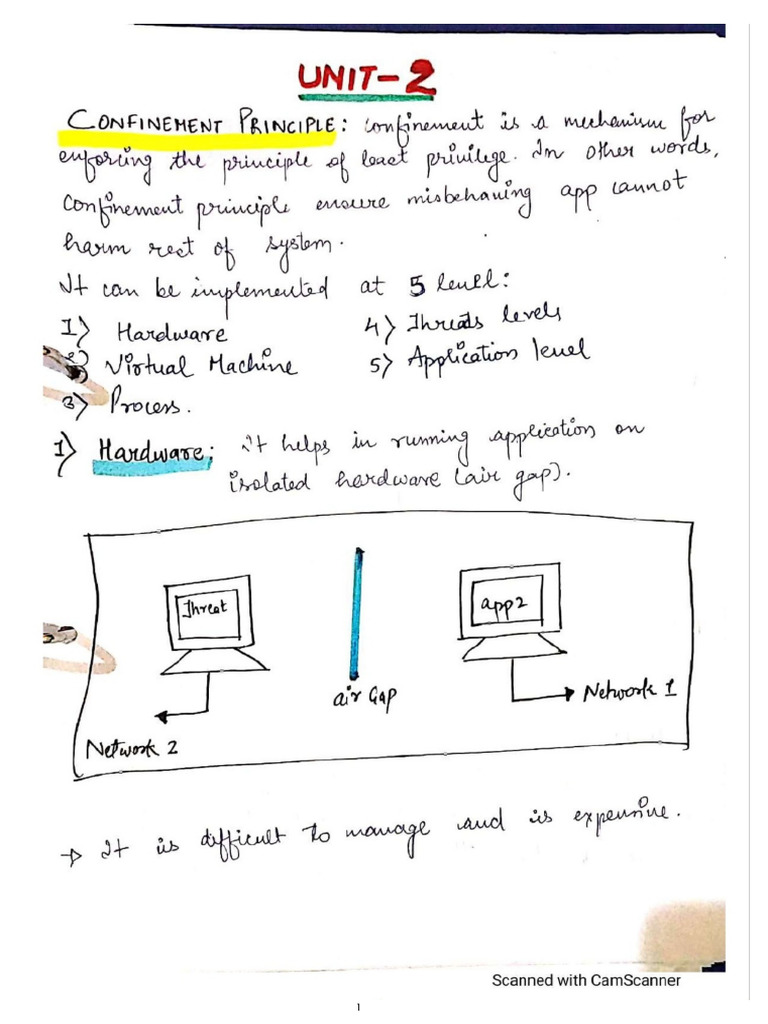 UNIT-2
CONFINEMENT PRINCIPLE: Confinement is a mechanism for
enforcing the principle of least privilege. In other words,
confinement principle ensure misbehaving app cannot
harm rest of system.
It can be implemented at 5 levell:
1) Hardware 4) Threats levels
2) Virtual Machine 5) Application level
3) Process.
1) Hardware: it helps in running application on
isolated hardware (air gap).
Threat app2
air Gap Network 1
Network 2
→ It is difficult to manage and is expensive.
Scanned with CamScanner
1